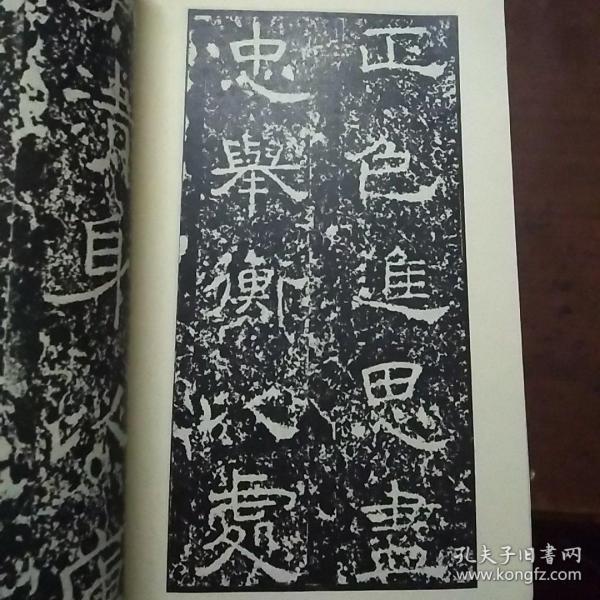 正色進思盡
忠舉衡以處
清身以
孔夫子旧书网
www.kongfz.com